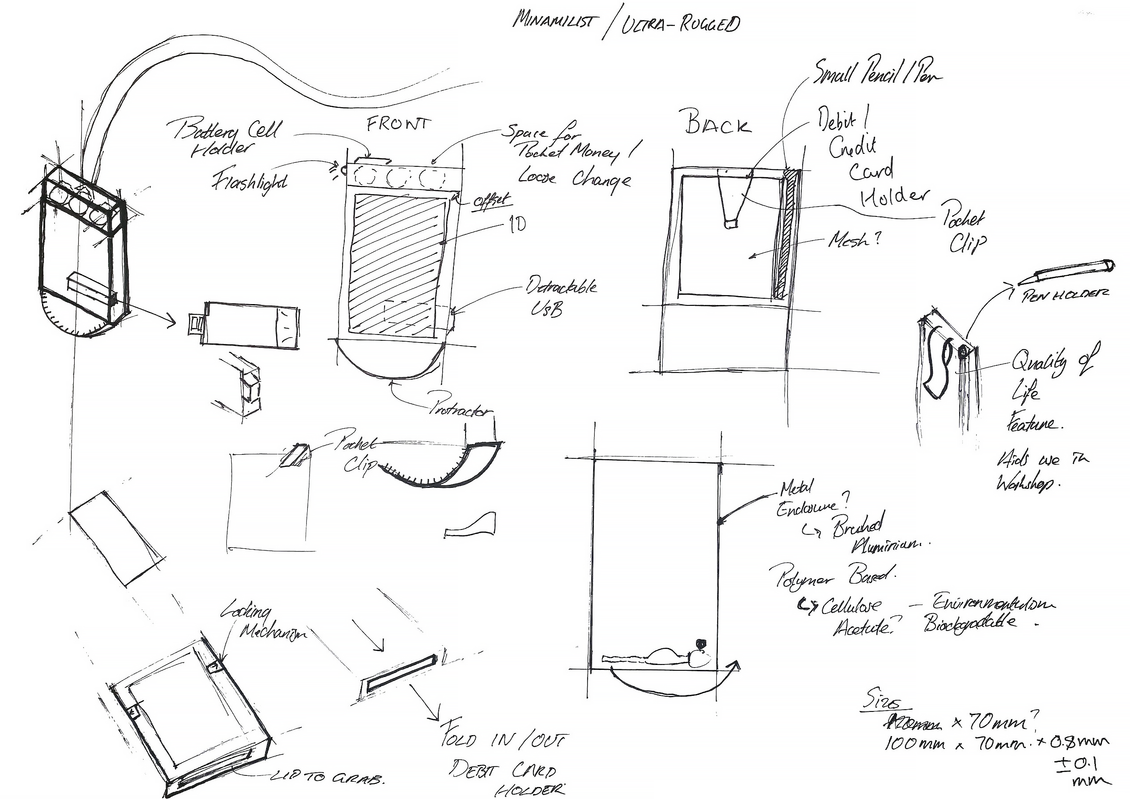 MINAMILIST / ULTRA-RUGGED
Battery Cell
Holder
Flashlight
FRONT
Space for
Pocket Money /
Loose Change
offset
ID
Detractable
USB
Protractor
BACK
Small Pencil / Pen
Debit /
Credit
Card
Holder
Pocket
Clip
Mesh?
PEN HOLDER
Quality of
Life
Feature.
Aids use in
Workshop.
Pocket
Clip
Metal
Enclosure?
↳ Brushed
Aluminium.
Polymer Based.
↳ Cellulose
Acetate?
–
Biodegradable.
Locking
Mechanism
LIP TO GRAB.
FOLD IN / OUT
DEBIT CARD
HOLDER
Sizes
x 70mm?
100mm x 70mm. x 0.8mm
± 0.1
mm